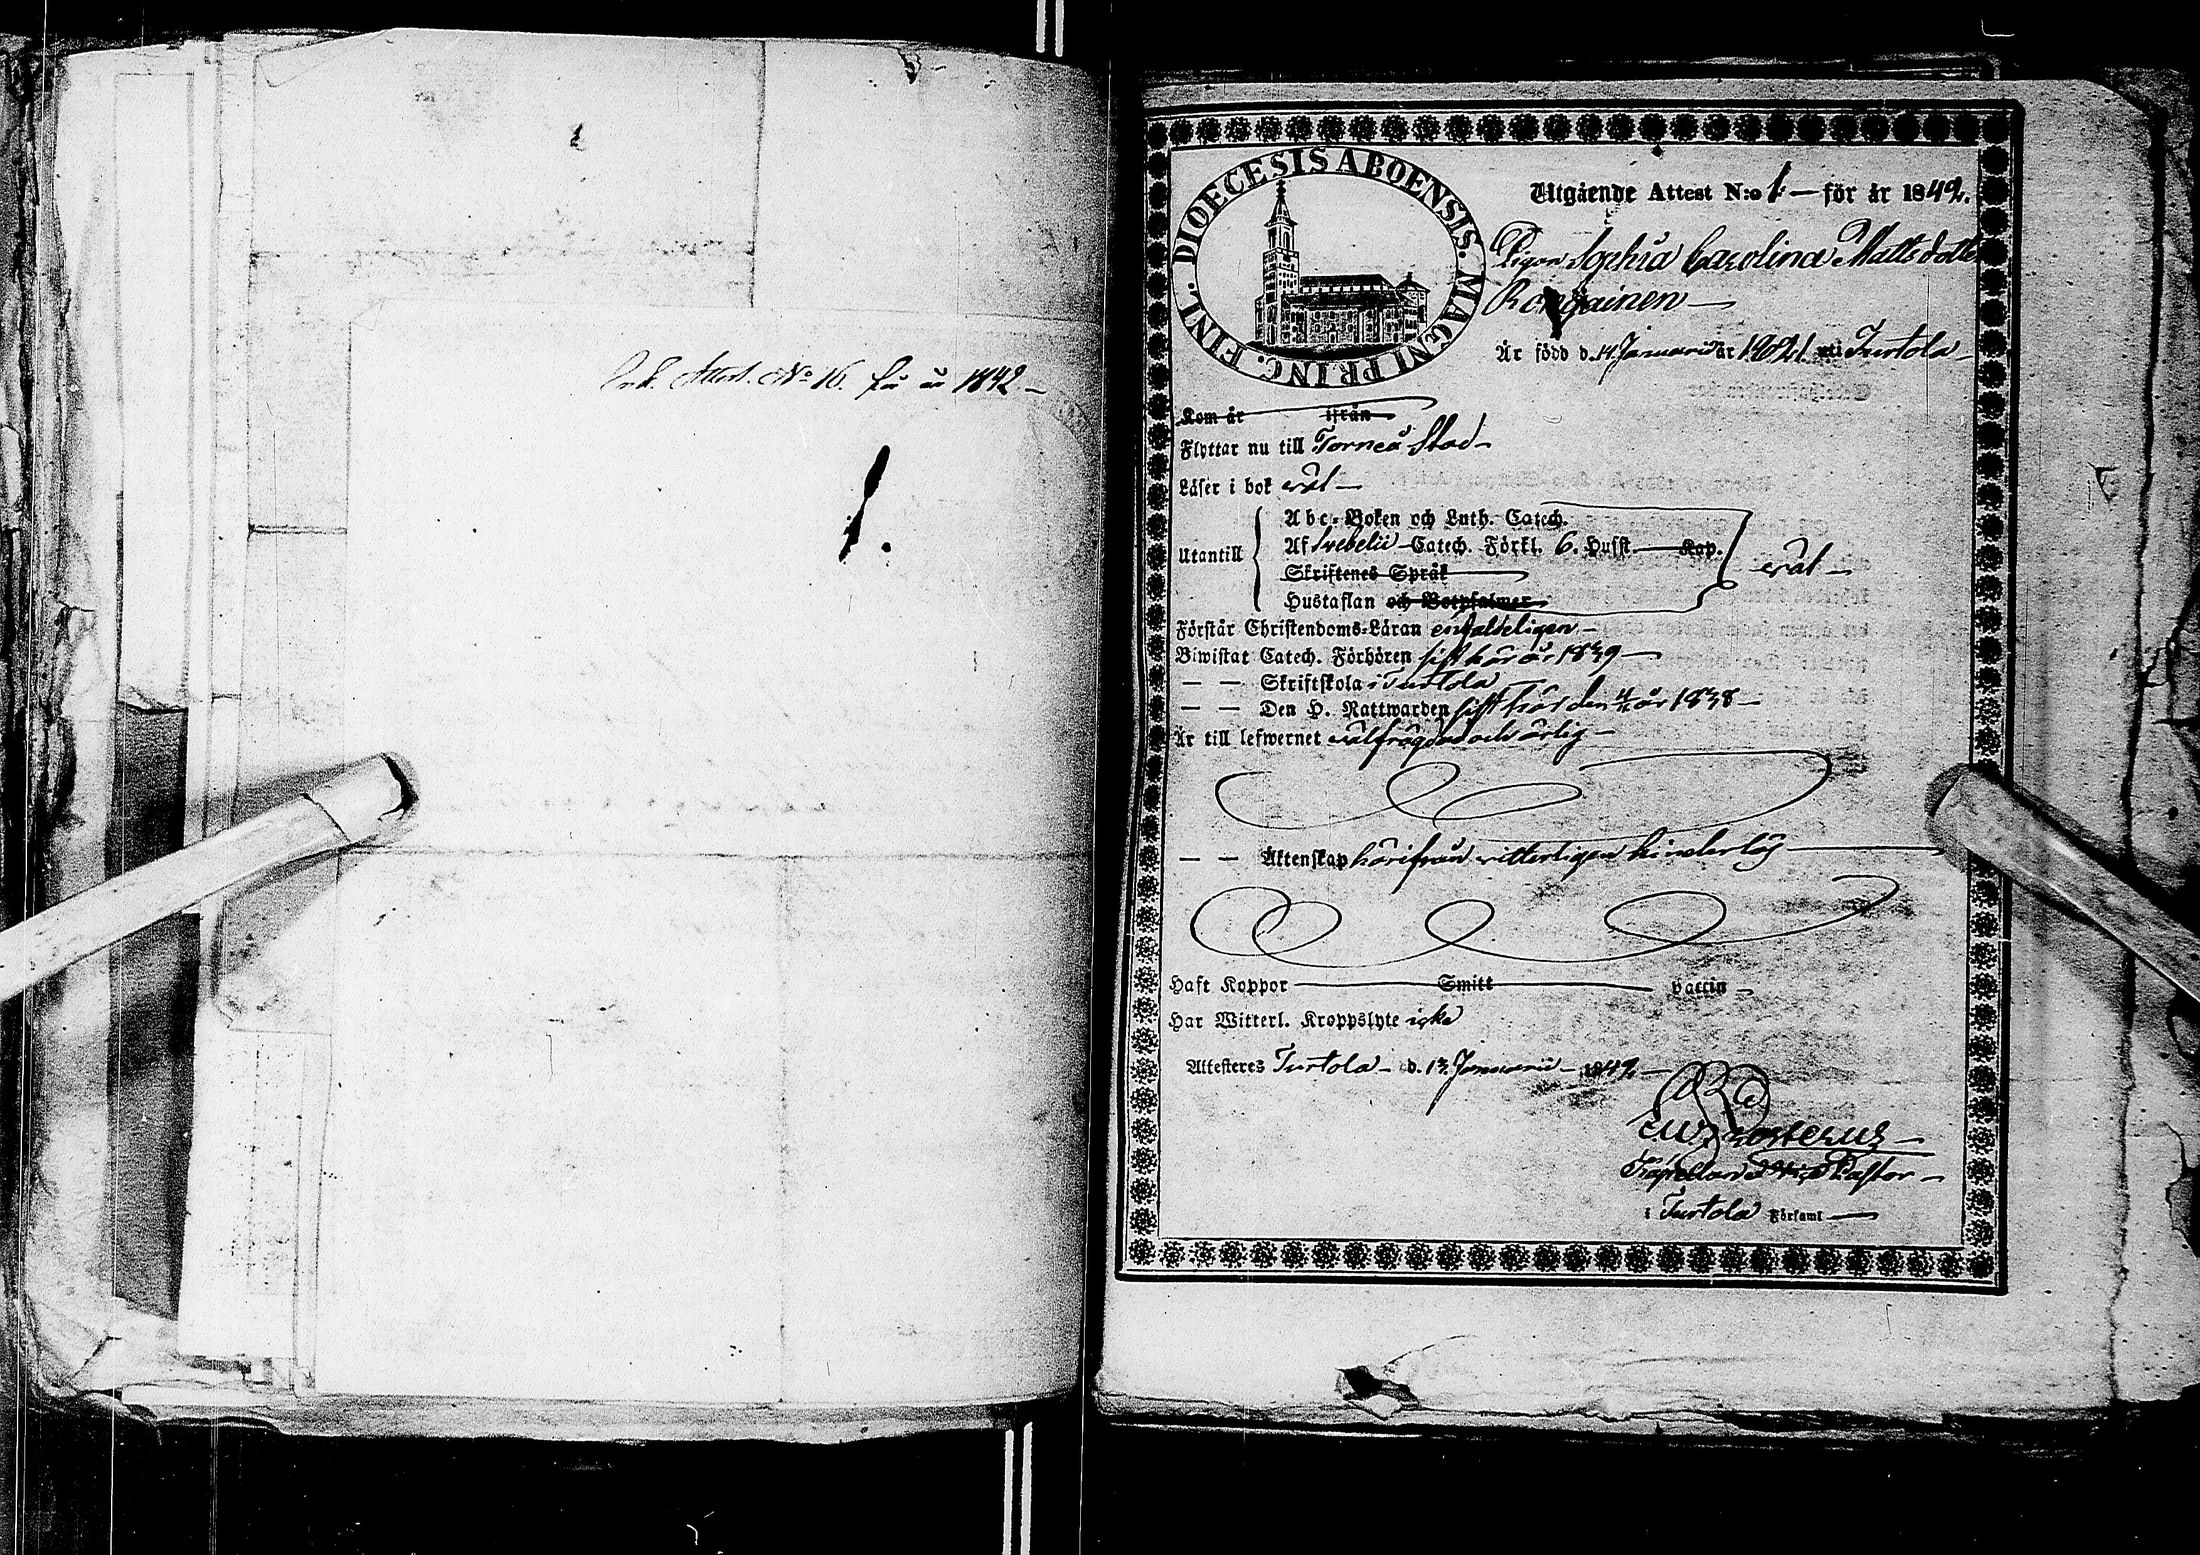 Ink. Attest. No 16. för år 1842 —
1.
DIOECESIS ABOENSIS. MAGNI PRINC. FINL.
Utgående Attest N:o 1 — för år 1842.
Pigan Sophia Carolina Mattsdotter
Är född d. 14 Januarii år 1821 uti Turtola —
Kom år ifrån
Flyttar nu till Torneå Stad —
Läser i bok väl —
Utantill
Abc-Boken och Luth. Catech.
Af Svebelii Catech. Förkl. 6. Hufst. — Kap.
Skriftenes Språk
Hustaflan och Botpsalmer
väl —
Förstår Christendoms-Läran enfaldeligen —
Biwistat Catech. Förhören sist här år 1839 —
— — Skriftskola i Turtola —
— — Den H. Nattwarden sist här den år 1838 —
Är till lefwernet välfrägdad och ärlig —
— — Äktenskap härifrån vitterligen hinderlös —
Haft Koppor — Smitt — vaccin —
Har Witterl. Kroppslyte icke
Attesteres Turtola — d. 13 Januarii — 1842 —
Kapellan Vice Pastor —
i Turtola Församl —